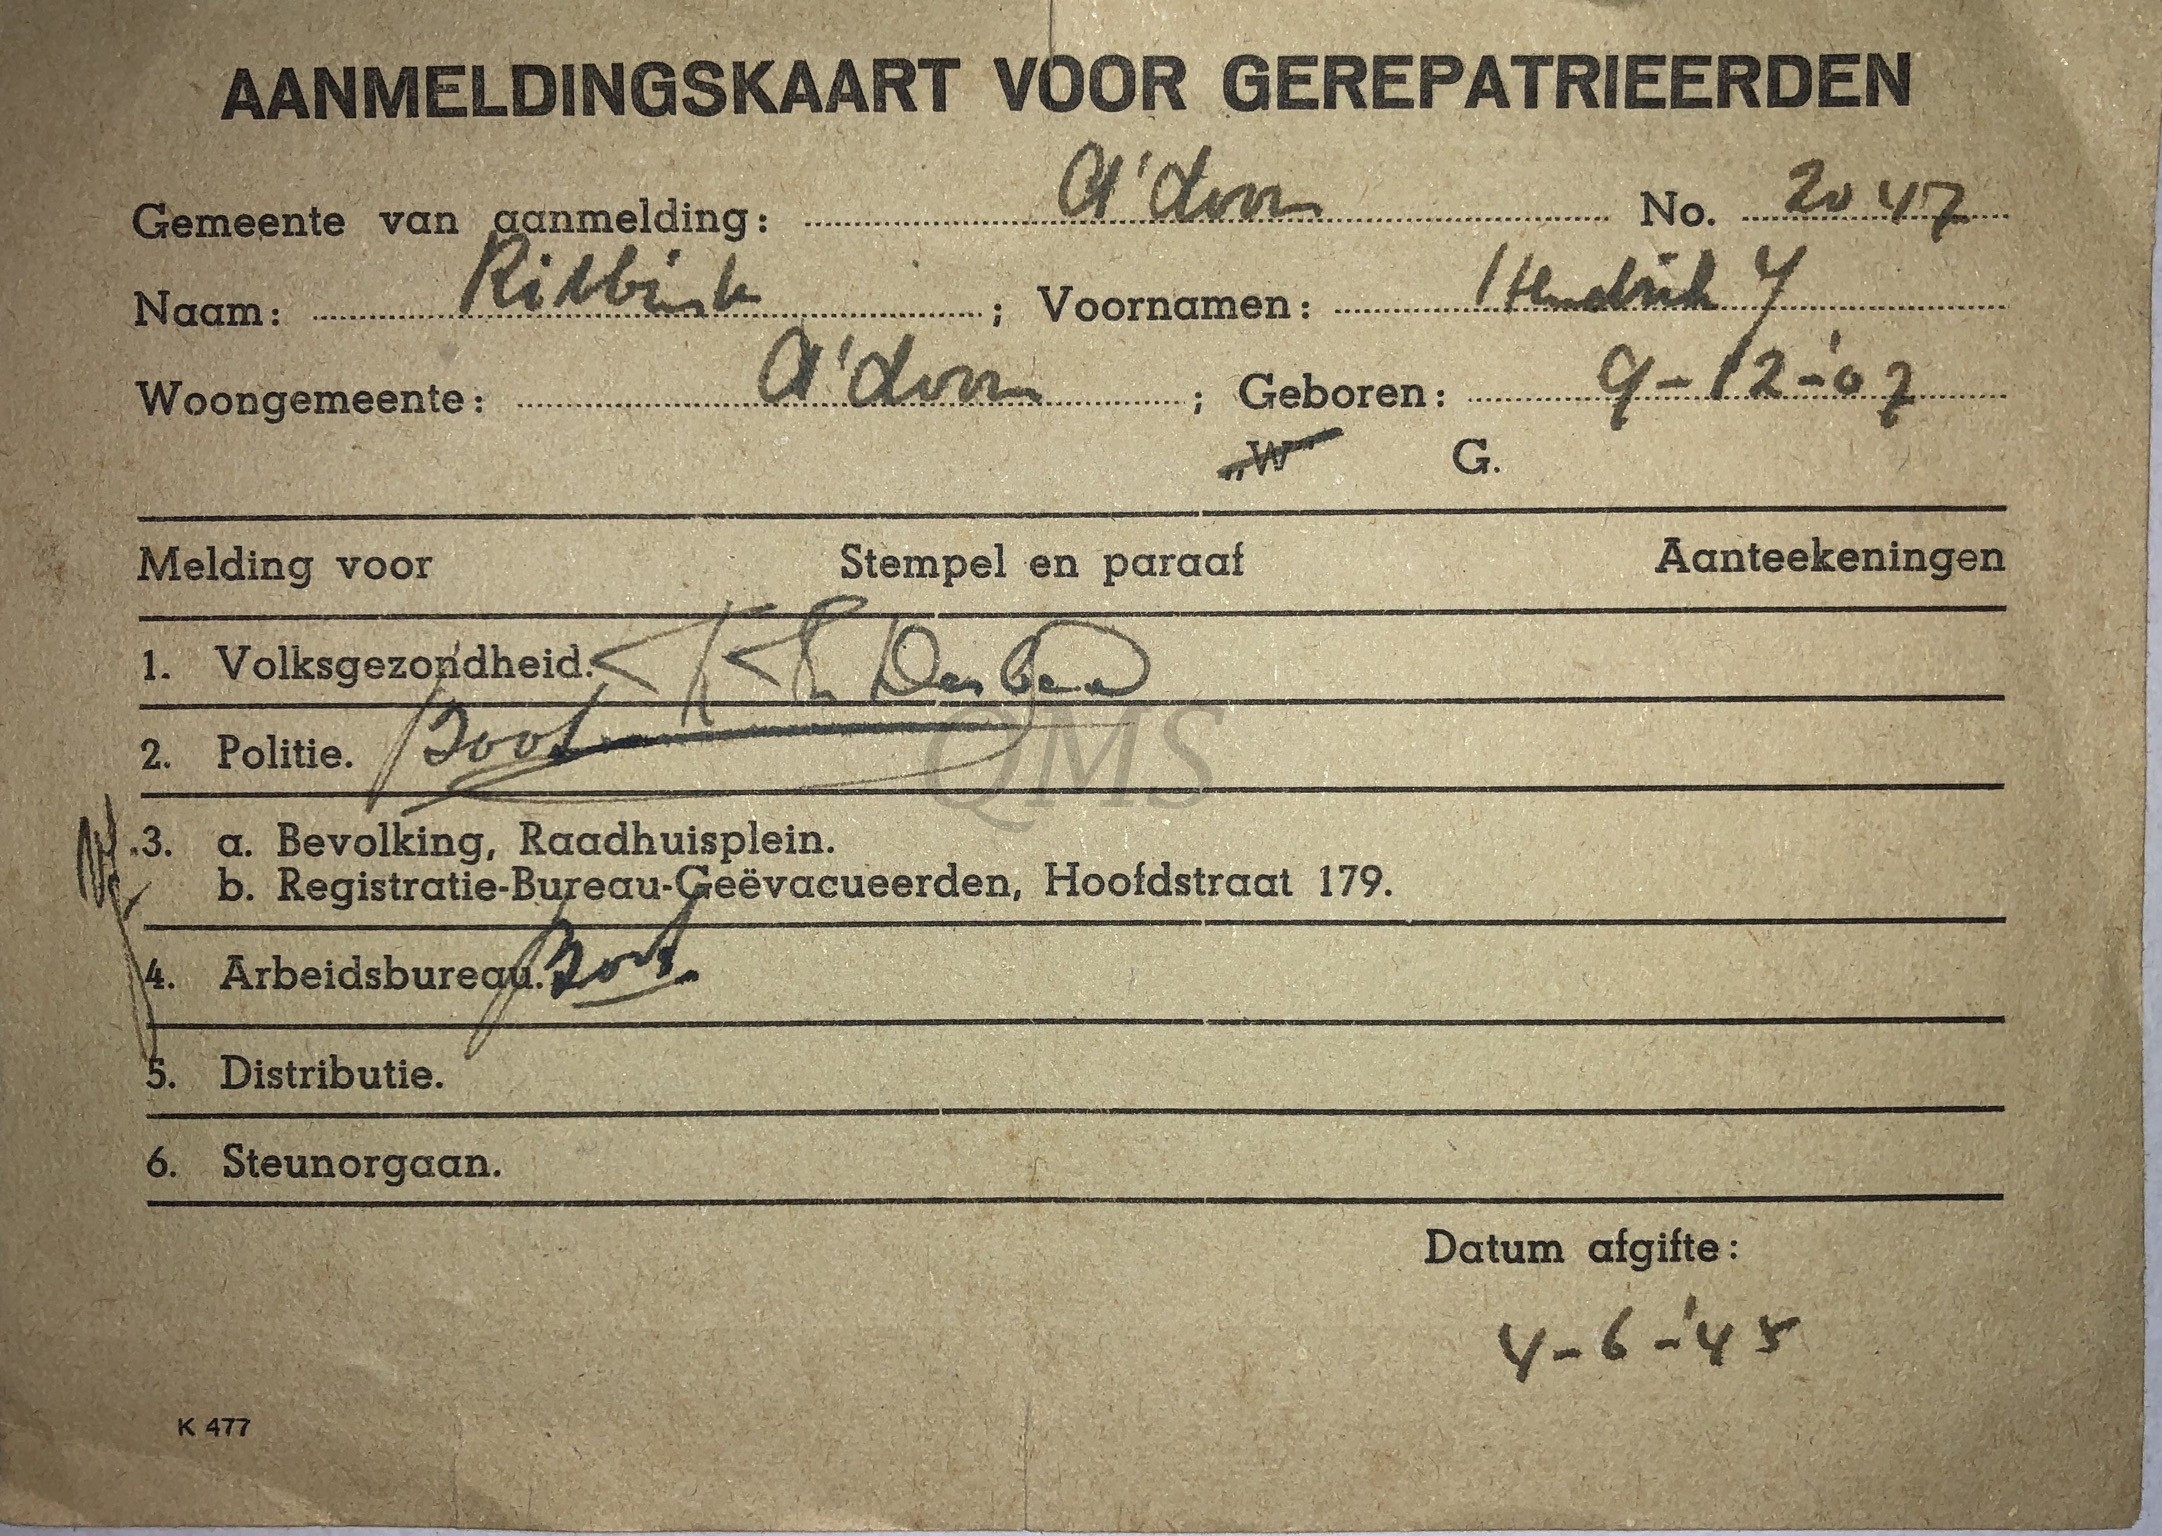 AANMELDINGSKAART VOOR GEREPATRIEERDEN
Gemeente van aanmelding: A'doorn No. 2047
Naam: Ribbink ; Voornamen: Hendrik J
Woongemeente: A'doorn ; Geboren: 9-12-'07
„W” G.
Melding voor Stempel en paraaf Aanteekeningen
1. Volksgezondheid.
2. Politie. Boot
QMS
3. a. Bevolking, Raadhuisplein.
b. Registratie-Bureau-Geëvacueerden, Hoofdstraat 179.
4. Arbeidsbureau. Boot
5. Distributie.
6. Steunorgaan.
Datum afgifte:
4-6-'45
K 477